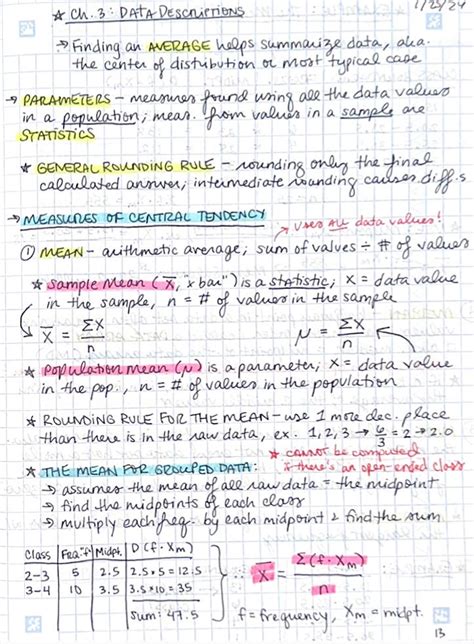 1/25/24
★ Ch. 3: DATA DESCRIPTIONS
→ Finding an AVERAGE helps summarize data, aka.
the center of distribution or most typical case
→ PARAMETERS – measures found using all the data values
in a population; meas. from values in a sample are
STATISTICS
★ GENERAL ROUNDING RULE – rounding only the final
calculated answer; intermediate rounding causes diff.s
→ MEASURES OF CENTRAL TENDENCY
→ uses ALL data values!
① MEAN – arithmetic average; sum of values ÷ # of values
★ Sample Mean (X̄, "x bar") is a statistic; X = data value
in the sample, n = # of values in the sample
X̄ = ΣX / n    μ = ΣX / n
★ Population mean (μ) is a parameter; X = data value
in the pop., n = # of values in the population
★ ROUNDING RULE FOR THE MEAN – use 1 more dec. place
than there is in the raw data, ex. 1, 2, 3 → 6/3 = 2 → 2.0
★ cannot be computed
if there's an open-ended class
★ THE MEAN FOR GROUPED DATA:
→ assumes the mean of all raw data = the midpoint
→ find the midpoints of each class
→ multiply each freq. by each midpoint & find the sum
Class | Freq. f | Midpt. | D (f · Xm)
2–3 | 5 | 2.5 | 2.5 · 5 = 12.5
3–4 | 10 | 3.5 | 3.5 · 10 = 35
sum: 47.5
∴ X̄ = Σ(f · Xm) / n
f = frequency, Xm = midpt.
13